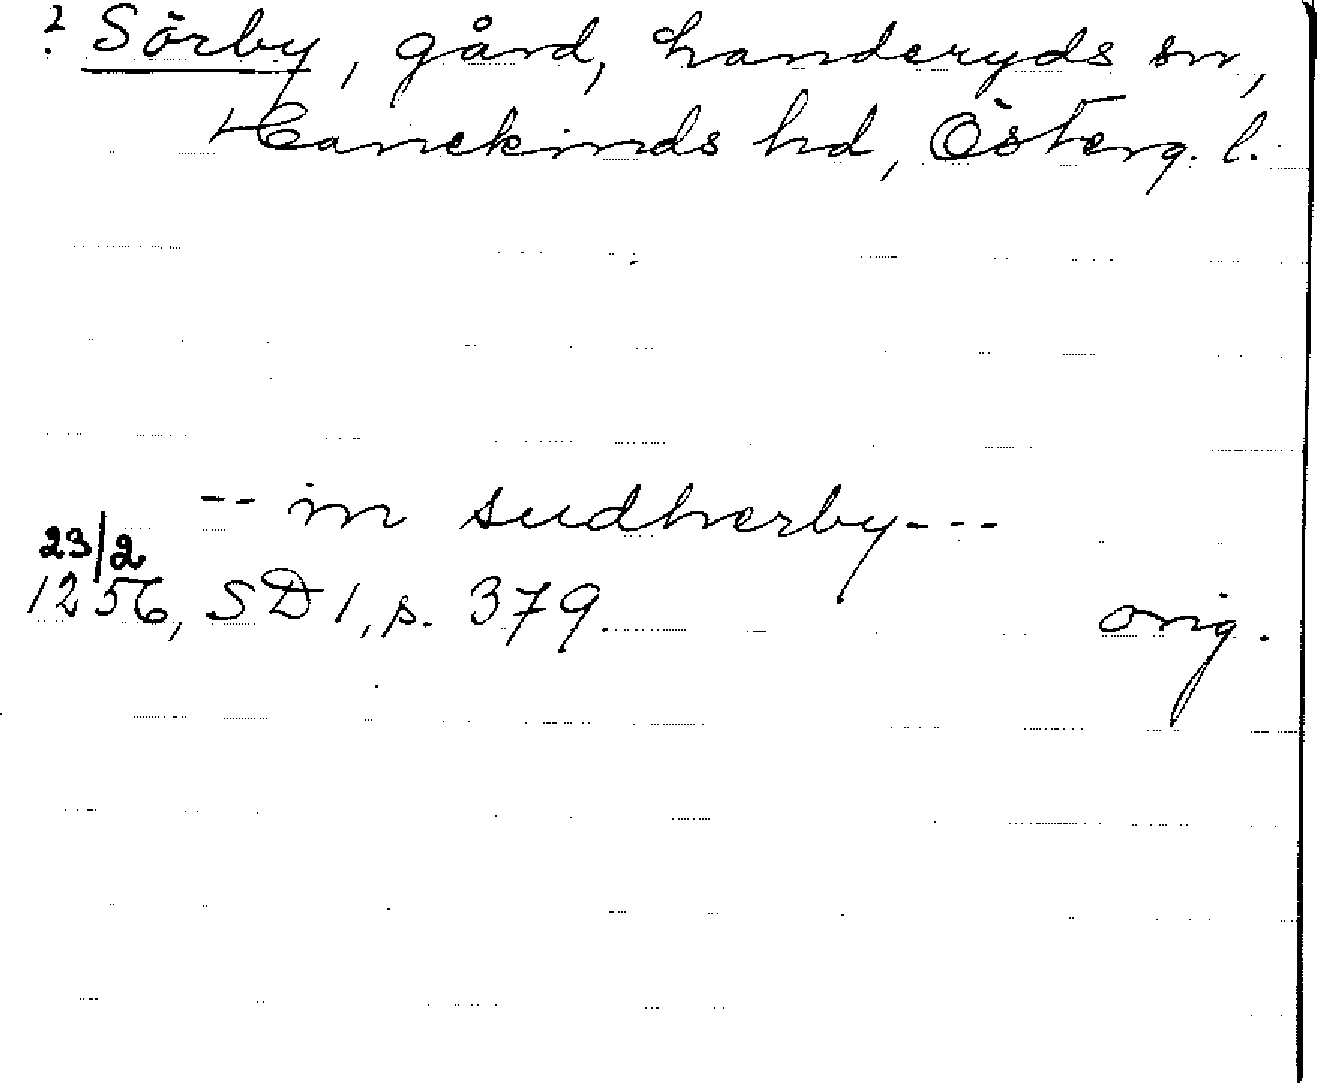 ? Sörby, gård, Landeryds sn,
Hanekinds hd, Österg. l.
-- in sudherby---
23/2
1256, SD 1, p. 379. orig.